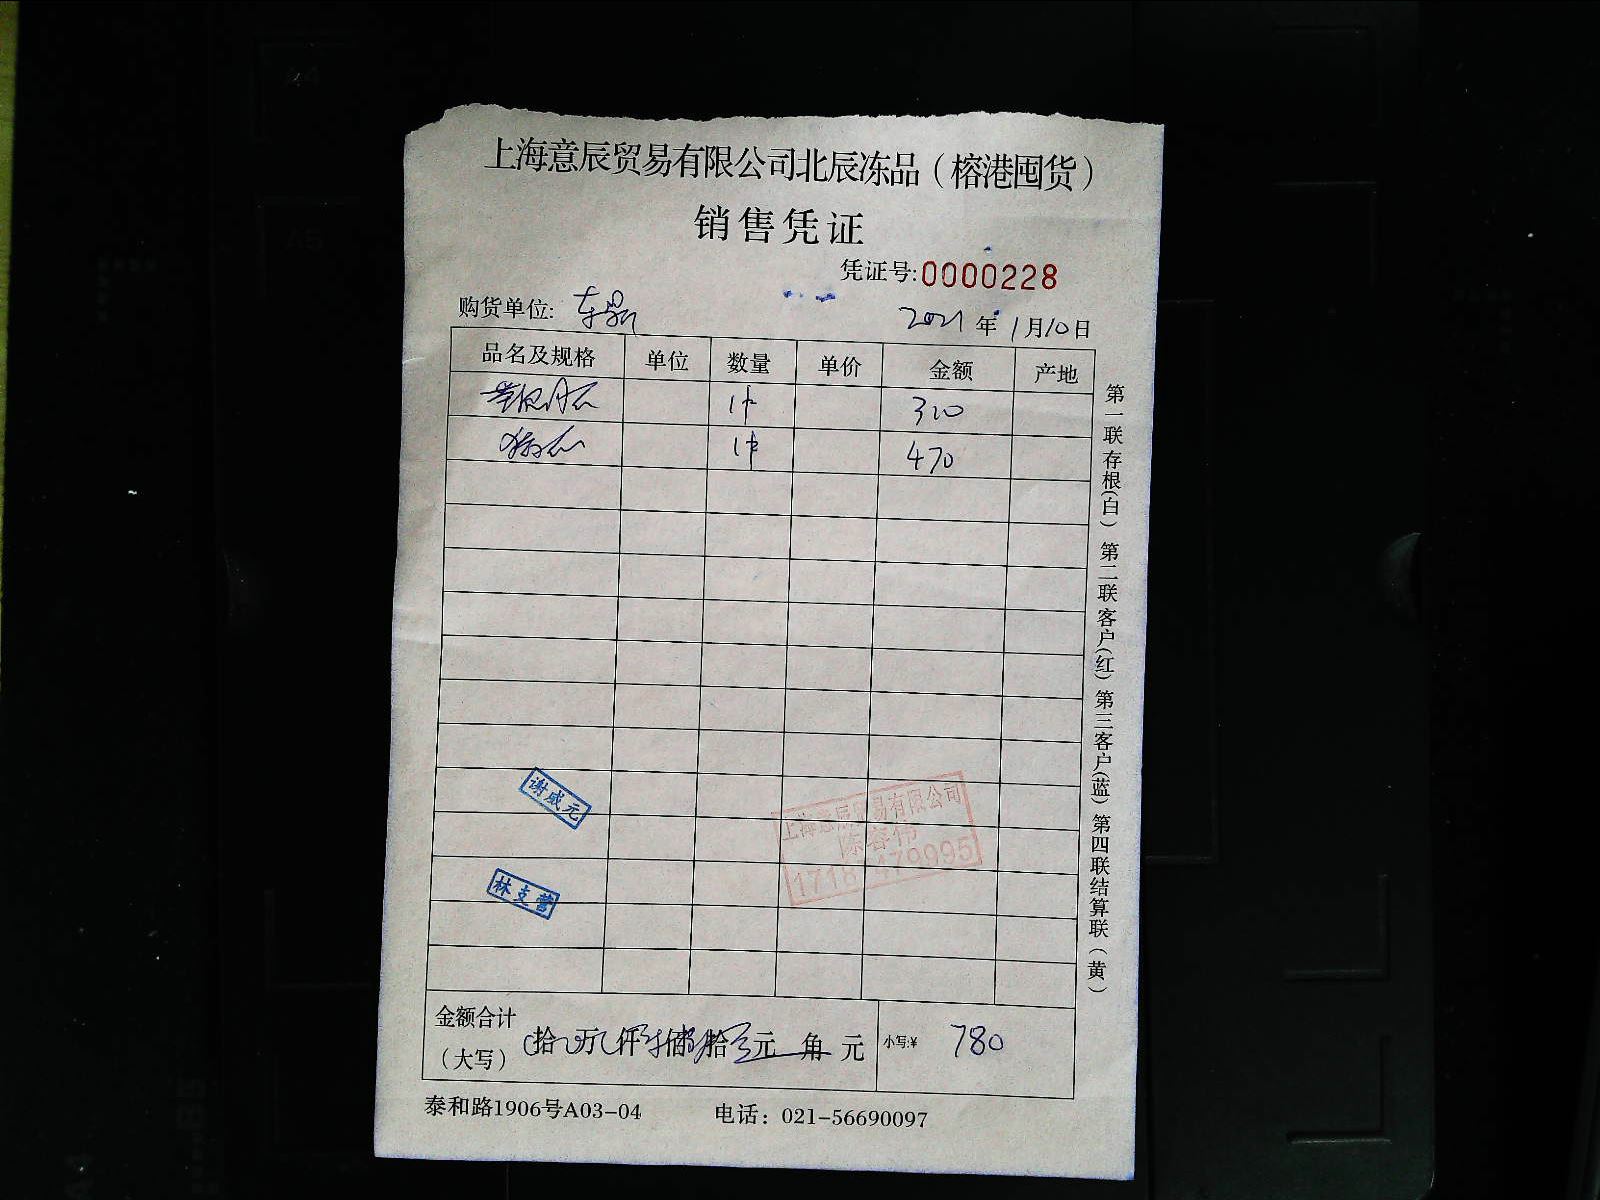 上海意辰贸易有限公司北辰冻品（榕港囤货）
销售凭证
凭证号:0000228
购货单位:
2021年1月10日
品名及规格 单位 数量 单价 金额 产地
1件 310
1件 470
谢成元
上海意辰贸易有限公司
陈容伟
林支营
金额合计（大写） 拾 万 仟 佰 拾 元 角 元 小写:¥ 780
泰和路1906号A03-04 电话：021-56690097
第一联存根(白) 第二联客户(红) 第三客户(蓝) 第四联结算联（黄）